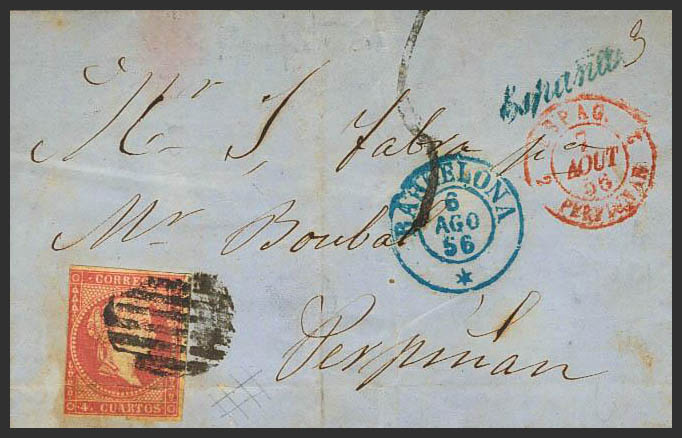 3
España
ESPAG.
7
AOUT
56
PERPIGNAN
2 2
Mr J, Fabra
BARCELONA
6
AGO
56
Mr Boubal
Perpiñan
CORREOS
4 CUARTOS